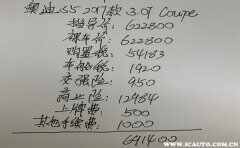 奥迪S5 2017款 3.0T Coupe
指导价: 622800
裸车价: 622800
购置税: 54183
车船税: 1920
交强险: 950
商业险: 12984
上牌费: 500
其他手续费: 1000
691400
爱卡汽车
WWW.XCAR.COM.CN